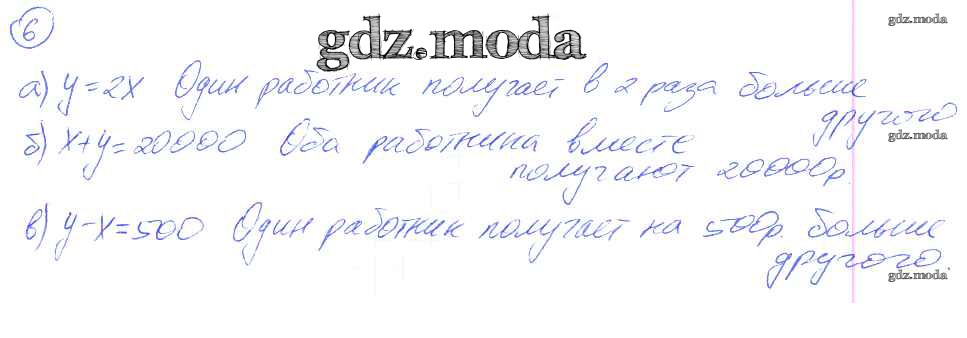 6
gdz.moda
gdz.moda
а) y=2x Один работник получает в 2 раза больше
другого
б) x+y=20000 Оба работника вместе
gdz.moda
получают 20000р.
в) y-x=500 Один работник получает на 500р. больше
другого.
gdz.moda